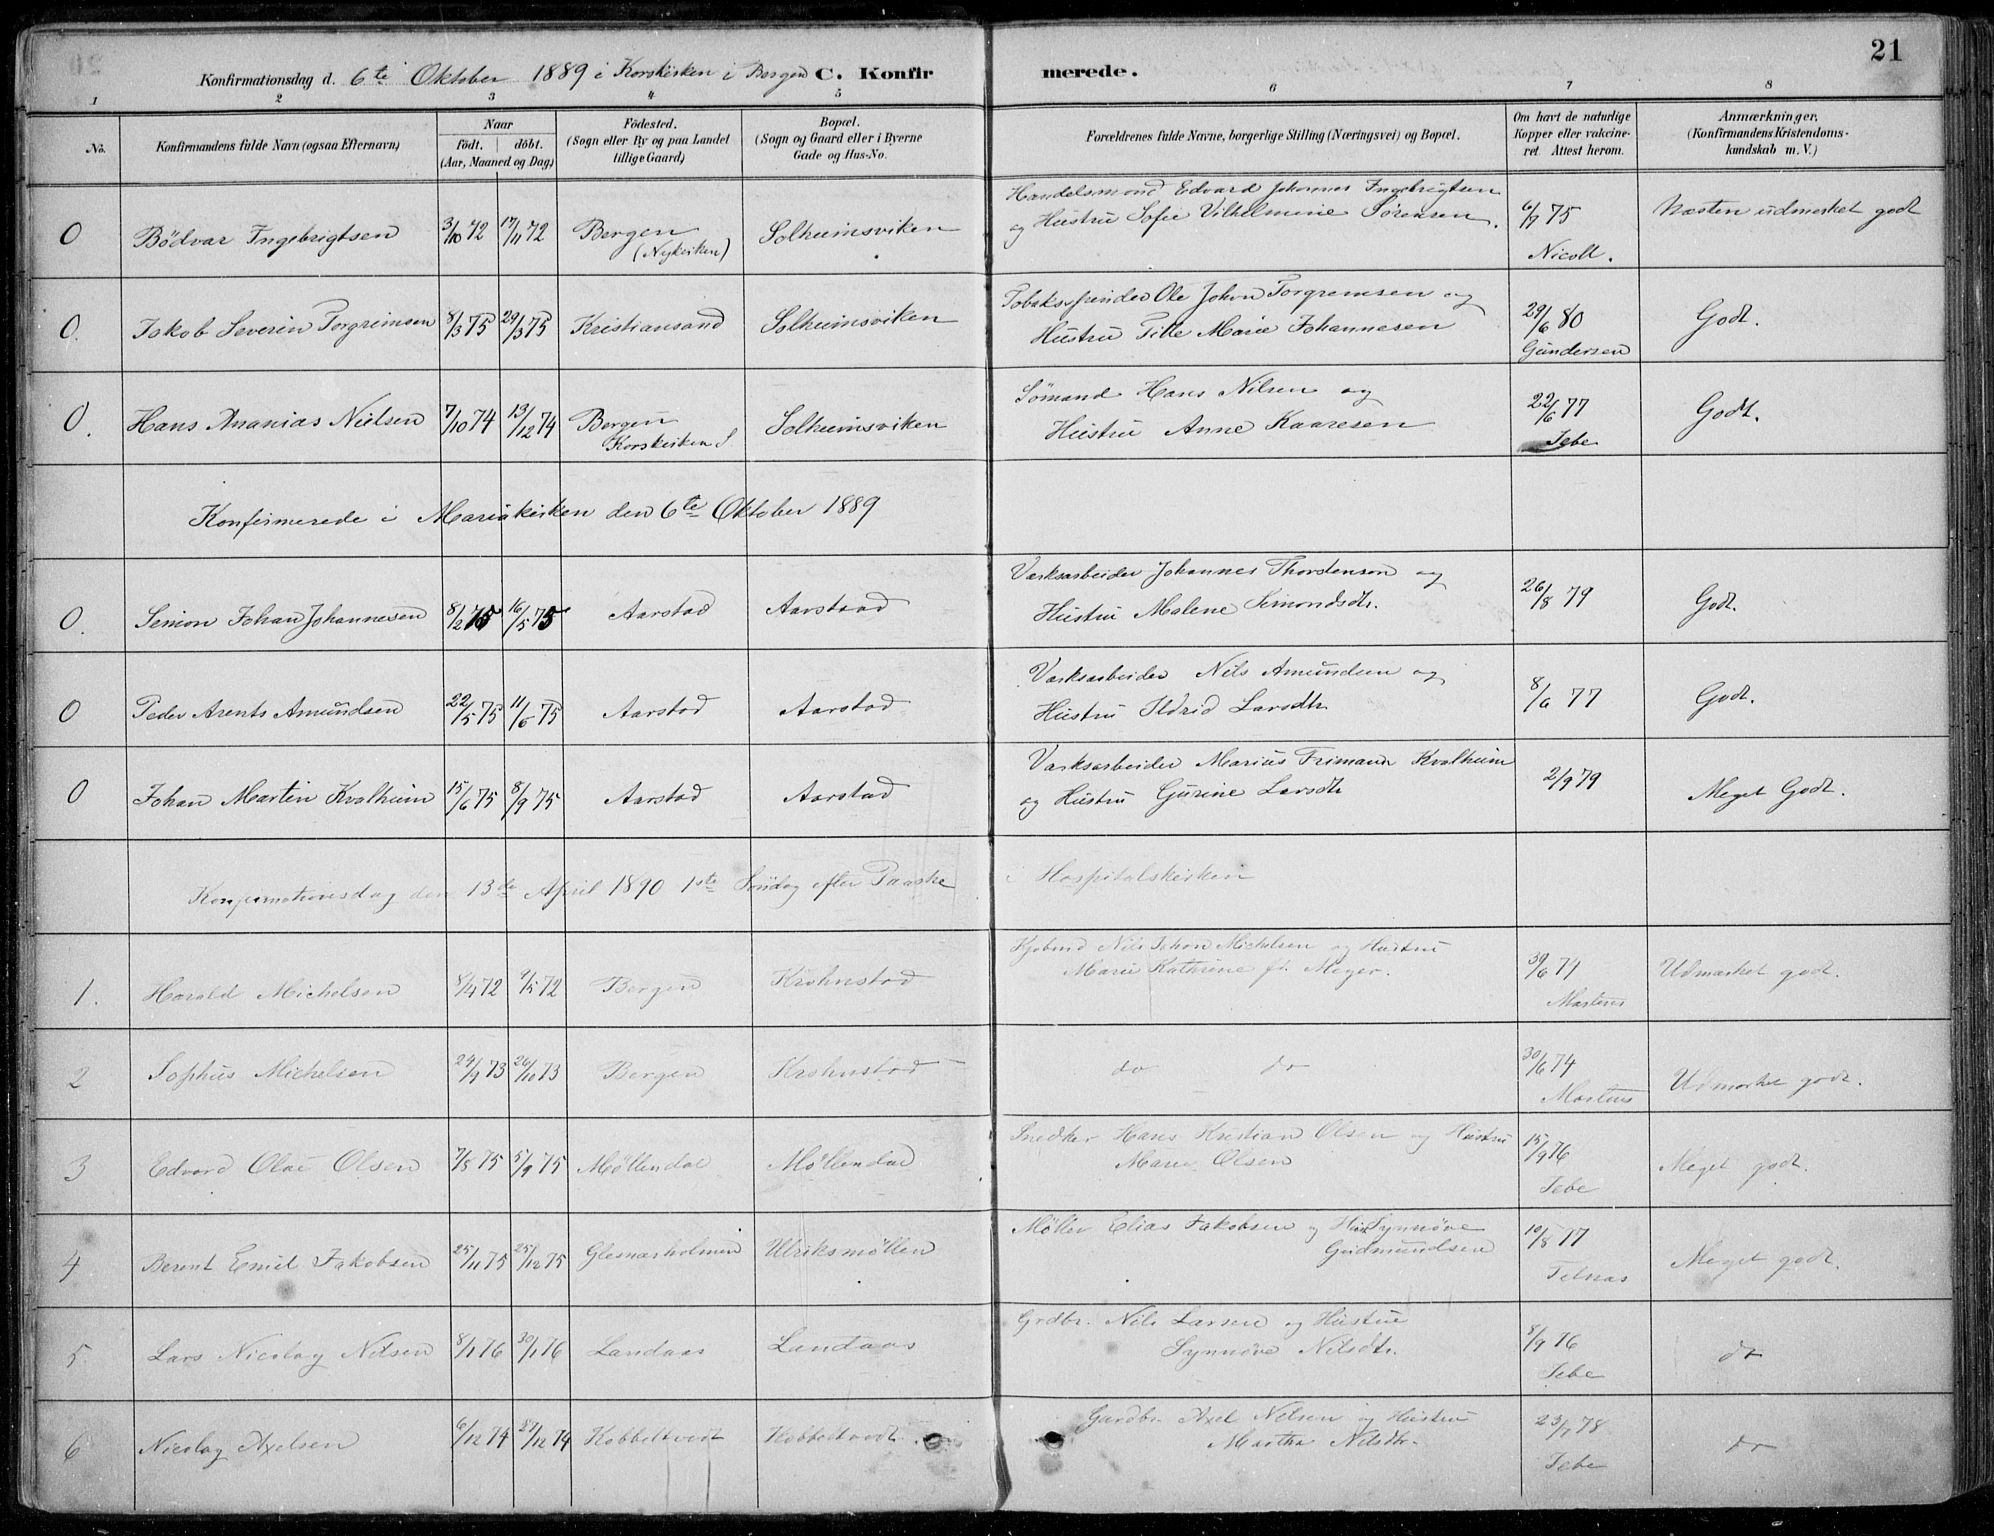 21
Konfirmationsdag d. 6te Oktober 1889 i Korskirken i Bergen C. Konfirmerede.
1 2 3 4 5 6 7 8
No.
Konfirmandens fulde Navn (ogsaa Efternavn)
Naar
födt. döbt.
(Aar, Maaned og Dag)
Födested.
(Sogn eller By og paa Landet
tillige Gaard)
Bopæl.
(Sogn og Gaard eller i Byerne
Gade og Hus-No.
Forældrenes fulde Navne, borgerlige Stilling (Næringsvei) og Bopæl.
Om havt de naturlige
Kopper eller vakcine-
ret. Attest herom.
Anmærkninger.
(Konfirmandens Kristendoms-
kundskab m. V.)
Handelsmand Edvard Johannes Ingebrigtsen
0 Bödvar Ingebrigtsen 3/10 72 17/11 72 Bergen Solheimsviken og Hustru Sofie Vilhelmine Sørensen. 6/7 75 Næsten udmerket godt
(Nykirken) Nicoll.
Tobaksspinder Ole Johan Torgrimsen og
0. Jakob Severin Torgrimsen 8/3 75 29/3 75 Kristiansand Solheimsviken Hustru Tille Marie Johannesen 29/6 80 Godt.
Gundersen
Sømand Hans Nilsen og
0. Hans Ananias Nielsen 7/10 74 13/12 74 Bergen Solheimsviken Hustru Anne Kaaresen 22/6 77 Godt.
Korskirken S Jebe
Konfirmerede i Mariakirken den 6te Oktober 1889
Værksarbeider Johannes Thordenson og
0. Simon Johan Johannesen 8/2 75 16/5 75 Aarstad Aarstad Hustru Malene Simondsdtr. 26/8 79 Godt.
Værksarbeider Nils Amundsen og
0 Peder Arents Amundsen 22/5 75 11/6 75 Aarstad Aarstad Hustru Ildrid Larsdtr 8/6 77 Godt.
Værksarbeider Marius Frimann Kvalheim
0 Johan Martin Kvalheim 15/6 75 8/9 75 Aarstad Aarstad og Hustru Gurine Larsdtr 2/9 79 Meget Godt.
Konfirmationsdag den 13de April 1890 1ste Söndag efter Paaske i Hospitalskirken
Kjøbmd Nils Johan Michelsen og Hustru
1. Harald Michelsen 8/4 72 9/5 72 Bergen Krohnstad Marie Kathrine f. Meyer. 30/6 74 Udmærket godt.
Martens
2 Sophus Michelsen 24/9 73 26/10 73 Bergen Krohnstad do do 30/6 74 Udmærket godt.
Martens
Snedker Hans Kristian Olsen og Hustru
3 Edvard Olai Olsen 7/8 75 5/9 75 Møllendal Møllendal Marie Olsen 15/9 76 Meget godt.
Jebe
Møller Elias Jakobsen og Hus Synnøve
4 Berent Emil Jakobsen 25/11 75 25/12 75 Glesnæsholmen Ulriksmøllen Gudmundsen 10/8 77 Meget godt.
Telnæs
Grdbr. Nils Larsen og Hustru
5. Lars Nicolay Nilsen 8/1 76 30/1 76 Landaas Landaas Synnøve Nilsdtr. 8/9 76 do
Jebe
Gardbr Axel Nilsen og Hustru
6 Nicolay Axelsen 6/12 74 27/12 74 Kobbeltvedt Kobbeltvedt. Martha Nilsdtr. 23/7 78 do
Jebe